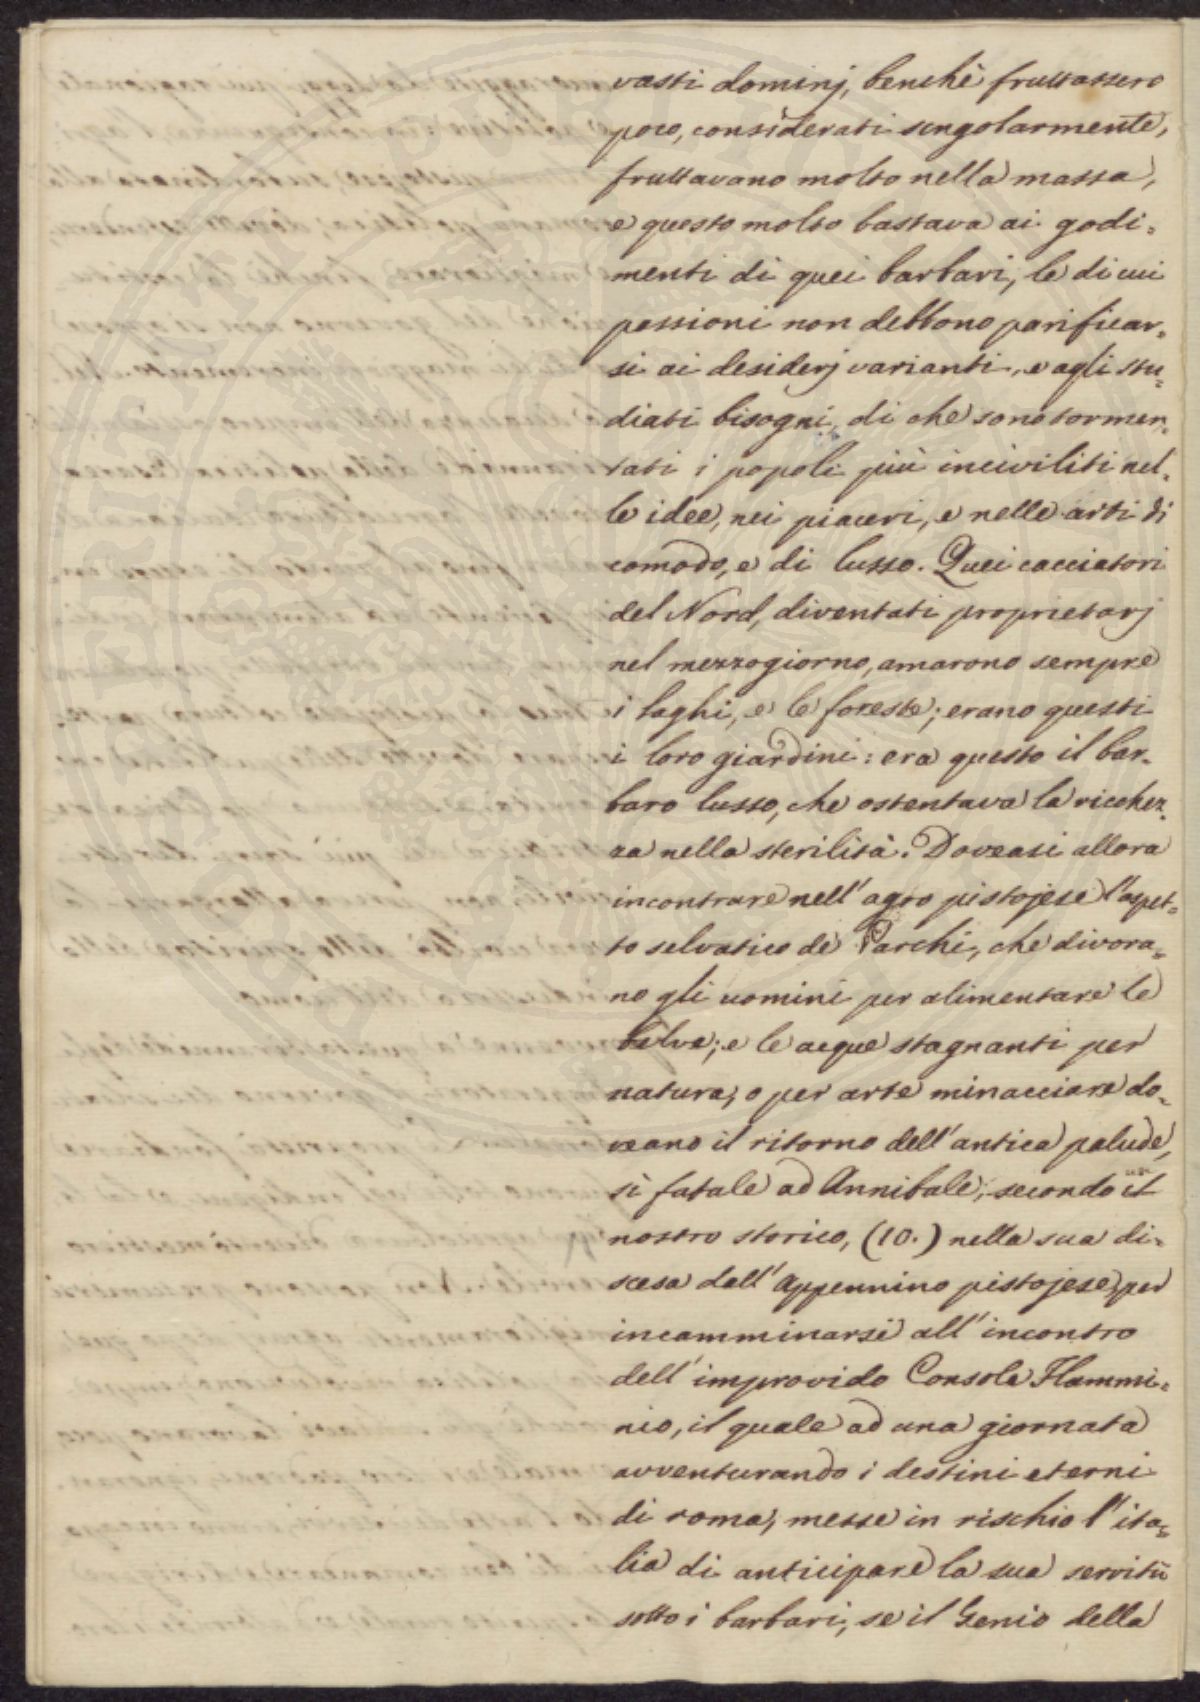 vasti dominj, benchè fruttassero
poco, considerati singolarmente,
fruttavano molto nella massa,
e questo molto bastava ai godi=
menti di quei barbari, le di cui
passioni non debbono parificar=
si ai desiderj varianti, e agli stu=
diati bisogni, di che sono tormen=
tati i popoli più inciviliti nel=
le idee, nei piaceri, e nelle arti di
comodo, e di lusso. Quei cacciatori
del Nord, diventati proprietarj
nel mezzogiorno, amarono sempre
i laghi, e le foreste; erano questi
i loro giardini: era questo il bar=
baro lusso, che ostentava la ricchez=
za nella sterilità. Doveasi allora
incontrare nell' agro pistojese l'aspet=
to selvatico de Parchi, che divora=
no gli uomini per alimentare le
belve; e le acque stagnanti per
natura, o per arte minacciare do=
veano il ritorno dell' antica palude,
sì fatale ad Annibale, secondo il
nostro storico, (10.) nella sua di=
scesa dall' Appennino pistojese, per
incamminarsi all' incontro
dell' improvido Console Flammi=
nio, il quale ad una giornata
avventurando i destini eterni
di roma, messe in rischio l' ita=
lia di anticipare la sua servitù
sotto i barbari, se il Genio della